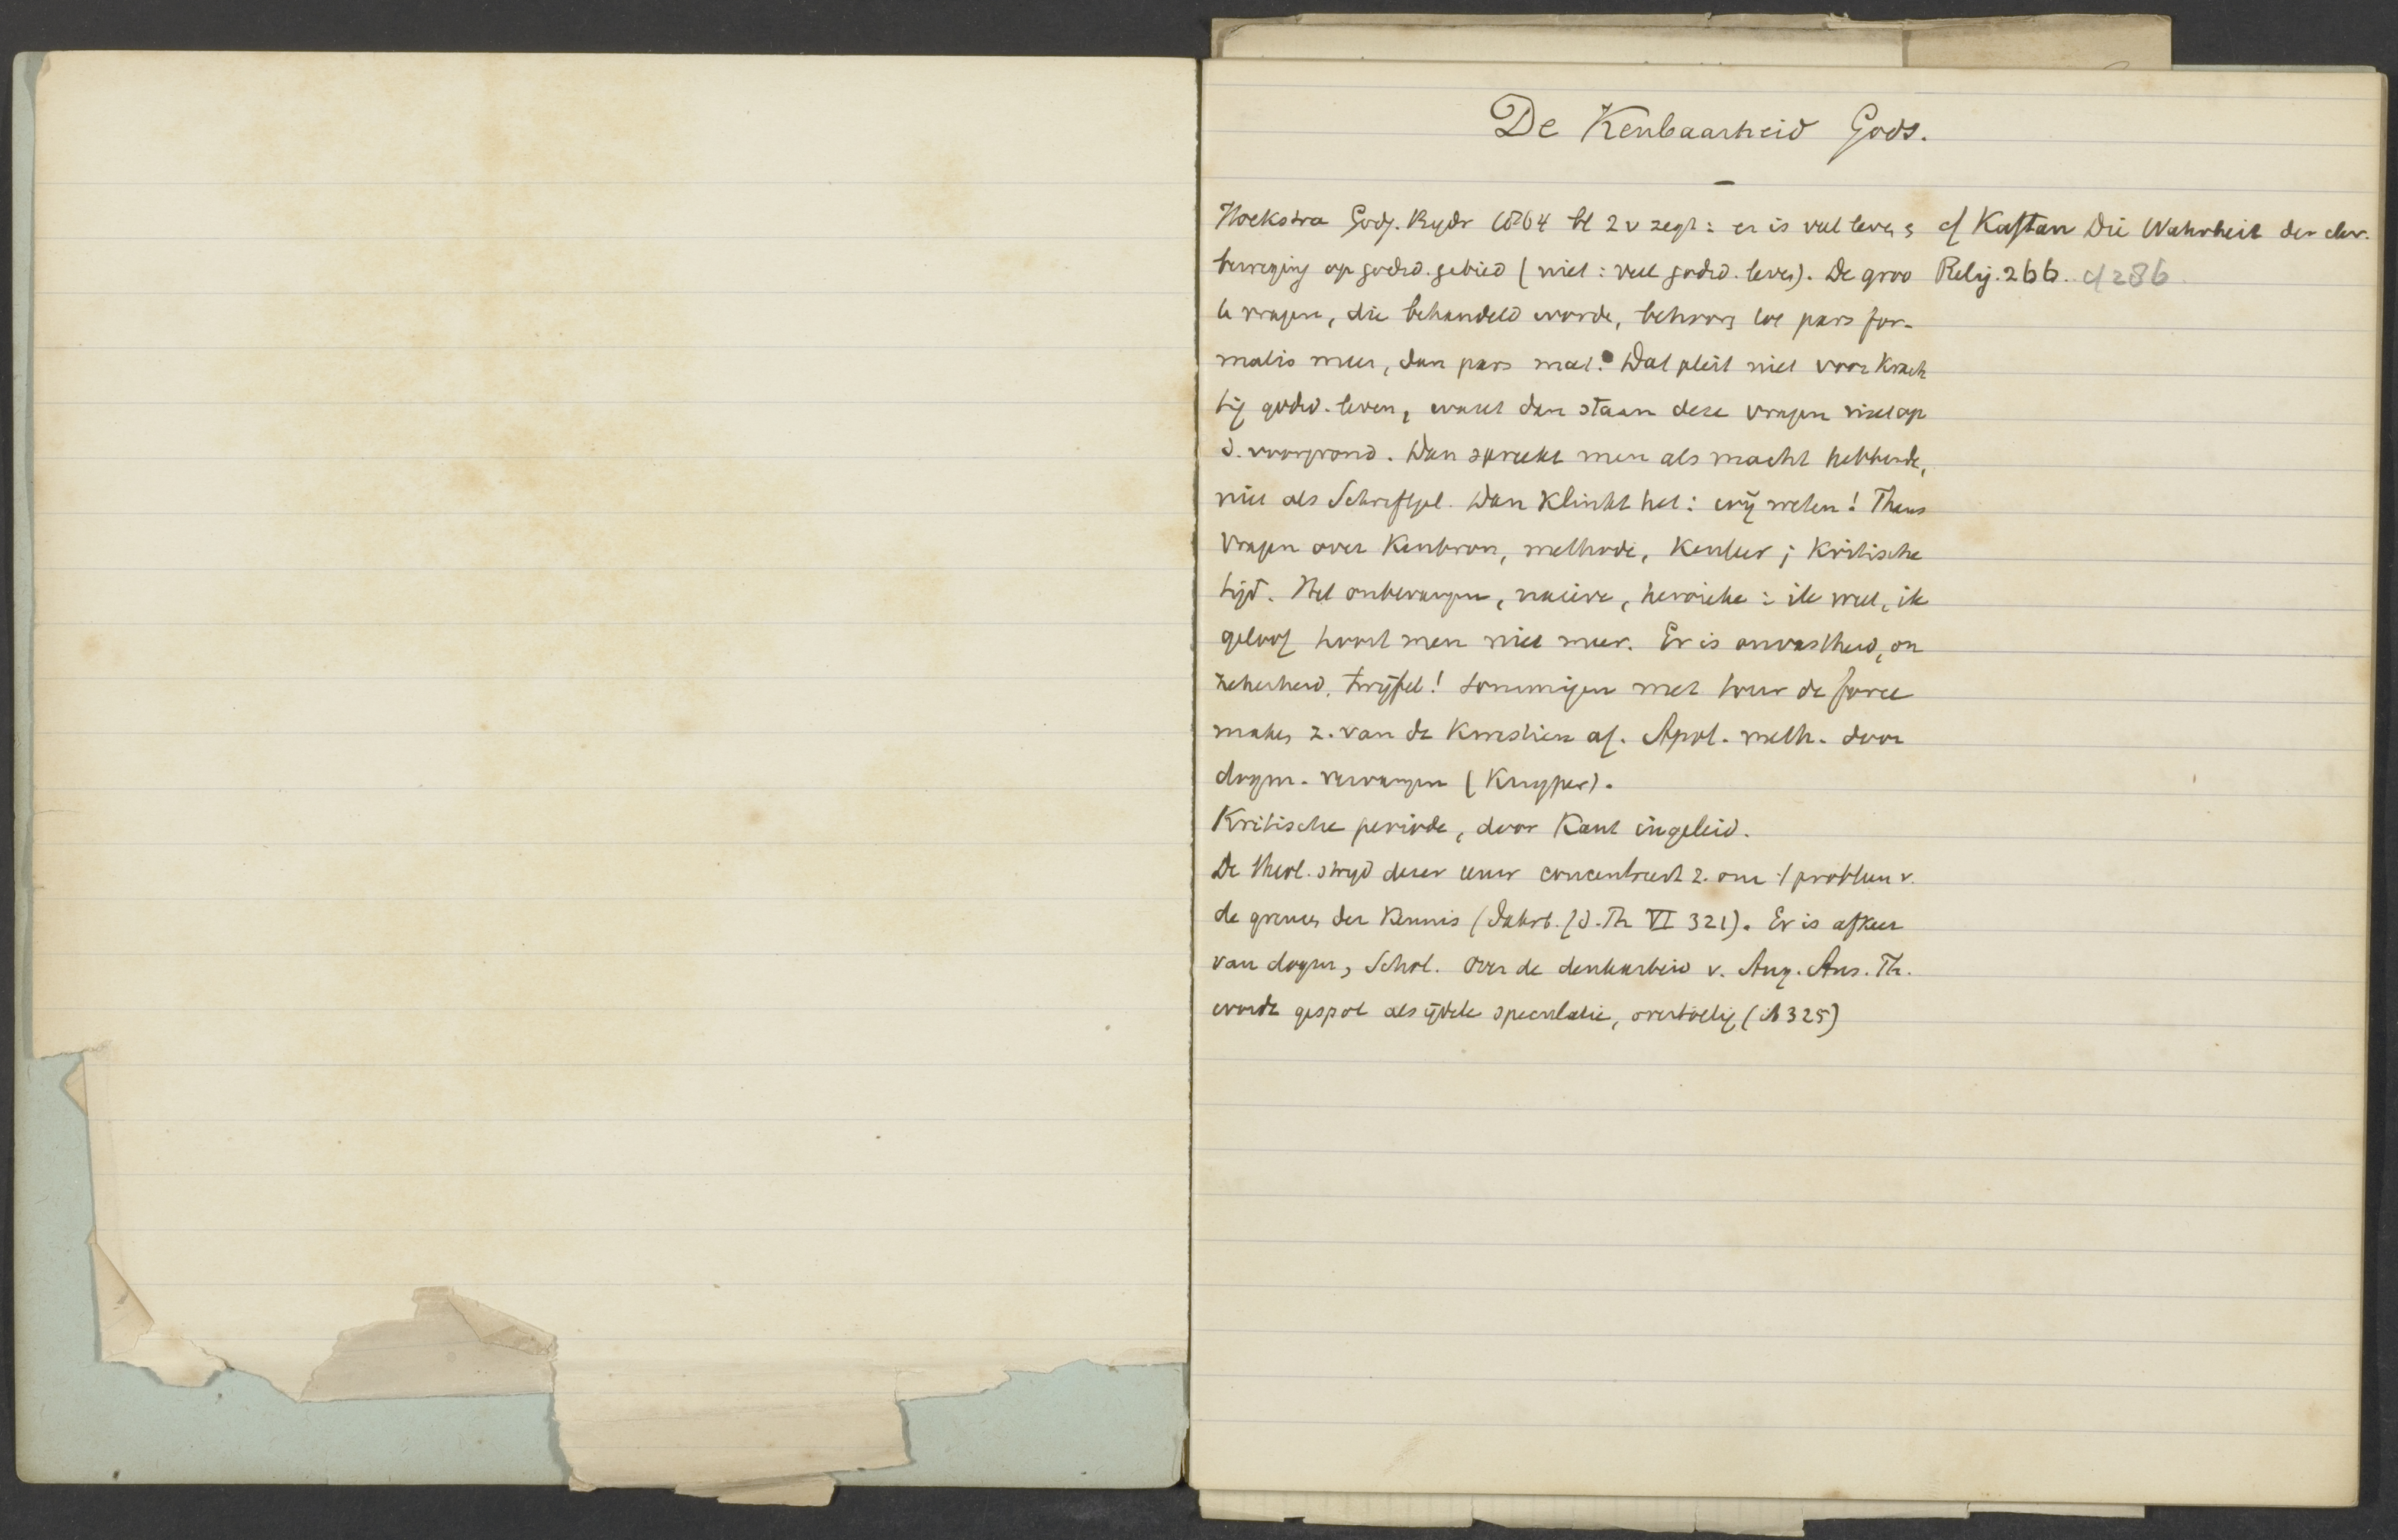 De Kenbaarheid Gods.
Hoekstra Godg. Bydr 1864 bl 2 v zegt: er is veel leven &
beweging op godsd. gebied (niet: veel godsd. leven). De groo
te vragen, die behandeld worde, behooren tot pars for-
malis meer, dan pars mat. Dat pleit niet voor krach
tig godsd. leven, want dan staan deze vragen niet op
d. voorgrond. Dan spreekt men als macht hebbende,
niet als Schriftgel. Dan klinkt het: wij weten! Thans
vragen over Kenbron, methode, Kenleer; Kritische
tijd. Het onbevangen, naïeve, heroieke: ik weet, ik
geloof hoort men niet meer. Er is onvastheid, on
zekerheid, twijfel! Sommigen met tour de force
maken z. van de kwestien af. Apol. meth. door
dogm. vervangen (Kuyper).
Kritische periode, door Kant ingeleid.
De theol. strijd dezer eeuw concentreert z. om 't probleem v.
de grenzen der Kennis (Jahrb. f d. Th VI 321). Er is afkeer
van dogm, Schol. Over de denkarbeid v. Aug. Ans. Th.
worde gespot als ijdele speculatie, overtollig (ib 325)
cf Kaftan Die Wahrheit der chr.
Relig. 266. cf 286